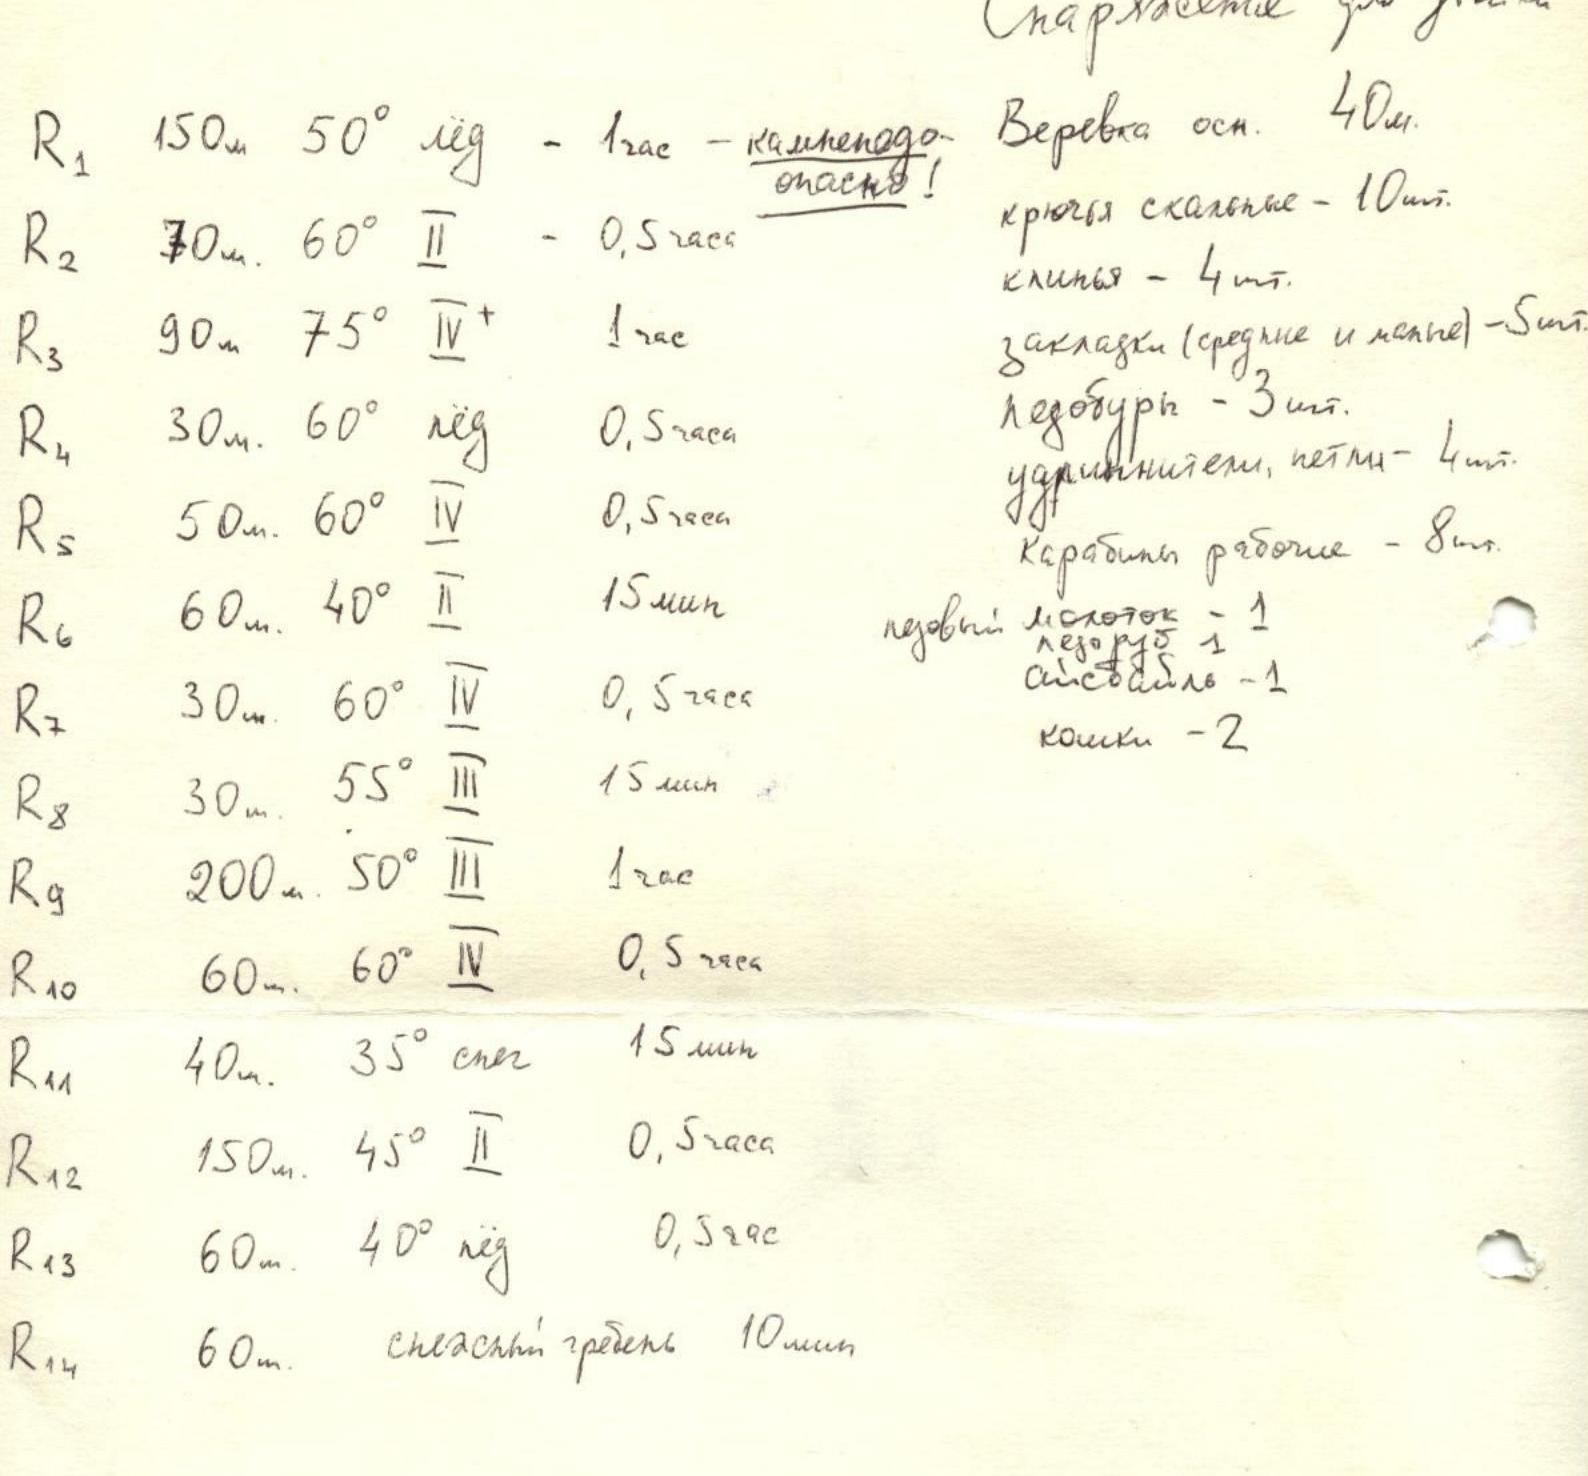 Снаряжение для
R1 150м 50° лёд - 1час - камнепадо-
опасно!
R2 70м. 60° II - 0,5часа
R3 90м 75° IV+ 1час
R4 30м. 60° лёд 0,5часа
R5 50м. 60° IV 0,5часа
R6 60м. 40° II 15мин
R7 30м. 60° IV 0,5часа
R8 30м. 55° III 15мин
R9 200м. 50° III 1час
R10 60м. 60° IV 0,5часа
R11 40м. 35° снег 15мин
R12 150м. 45° II 0,5часа
R13 60м. 40° лёд 0,5час
R14 60м. снежный гребень 10мин
Веревка осн. 40м.
крючья скальные - 10шт.
клинья - 4шт.
закладки (средние и малые) - 5шт.
ледобуры - 3шт.
удлиннители, петли - 4шт.
карабины рабочие - 8шт.
ледовый молоток - 1
ледоруб 1
айсбайль - 1
кошки - 2